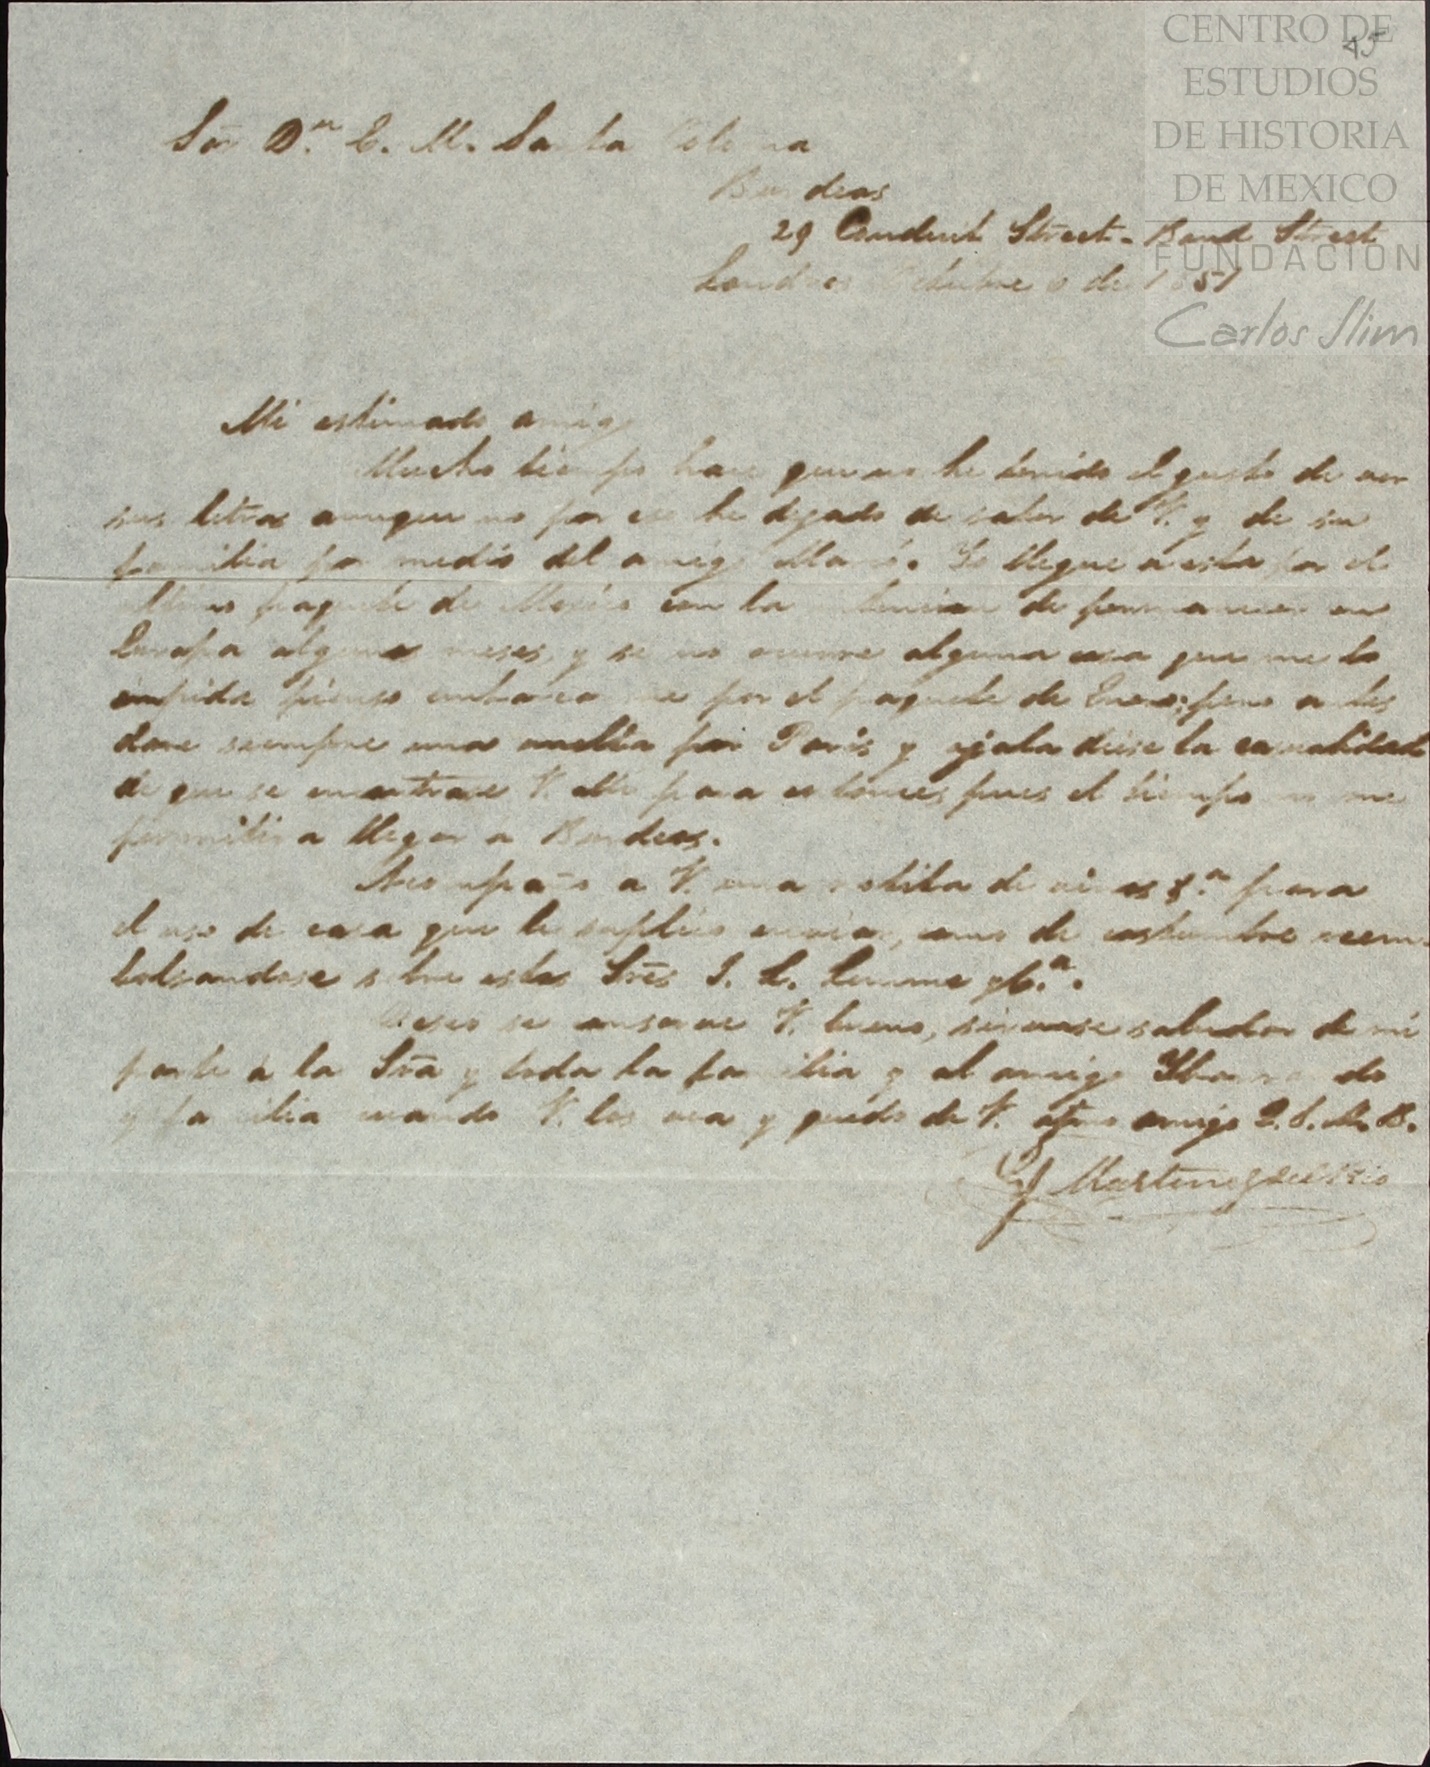 CENTRO DE
ESTUDIOS
DE HISTORIA
DE MEXICO
FUNDACIÓN
Carlos Slim
45
Sor Dn. E. M. Santa Coloma
Burdeos
29 Conduit Street - Bond Street
Londres Octubre 6 de 1851
Mi estimado amigo
Mucho tiempo hace que no he tenido el gusto de ver
sus letras aunque no por eso he dejado de saber de V. y de su
familia por medio del amigo. Yo llegue a esta por el
ultimo paquete de Mexico con la intencion de permanecer en
Europa algunos meses, y se no ocurre alguna cosa que me lo
impida pienso embarcarme por el paquete de Enero; pero antes
dare siempre una vuelta por Paris y ojala diese la casualidad
de que se encontrase V. alli para entonces pues el tiempo no me
permitira llegar a Burdeos.
Acompaño a V. una notita de vinos &a para
el uso de casa que le suplico enviar, como de costumbre reem
bolsandose sobre estos Sres J. L. Lemme y Ca.
Deseo se conserve V. bueno, sirvase saludar de mi
parte á la Sra y toda la familia y al amigo Ybarrondo
y familia cuando V. los vea y quedo de V. afmo amigo Q. B. S. M.
Martinez del Rio